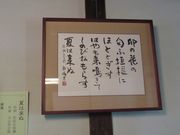 卯の花の
匂ふ垣根に
ほととぎす
はやも来鳴きて
しのびねもらす
夏は来ぬ
夏は来ぬ